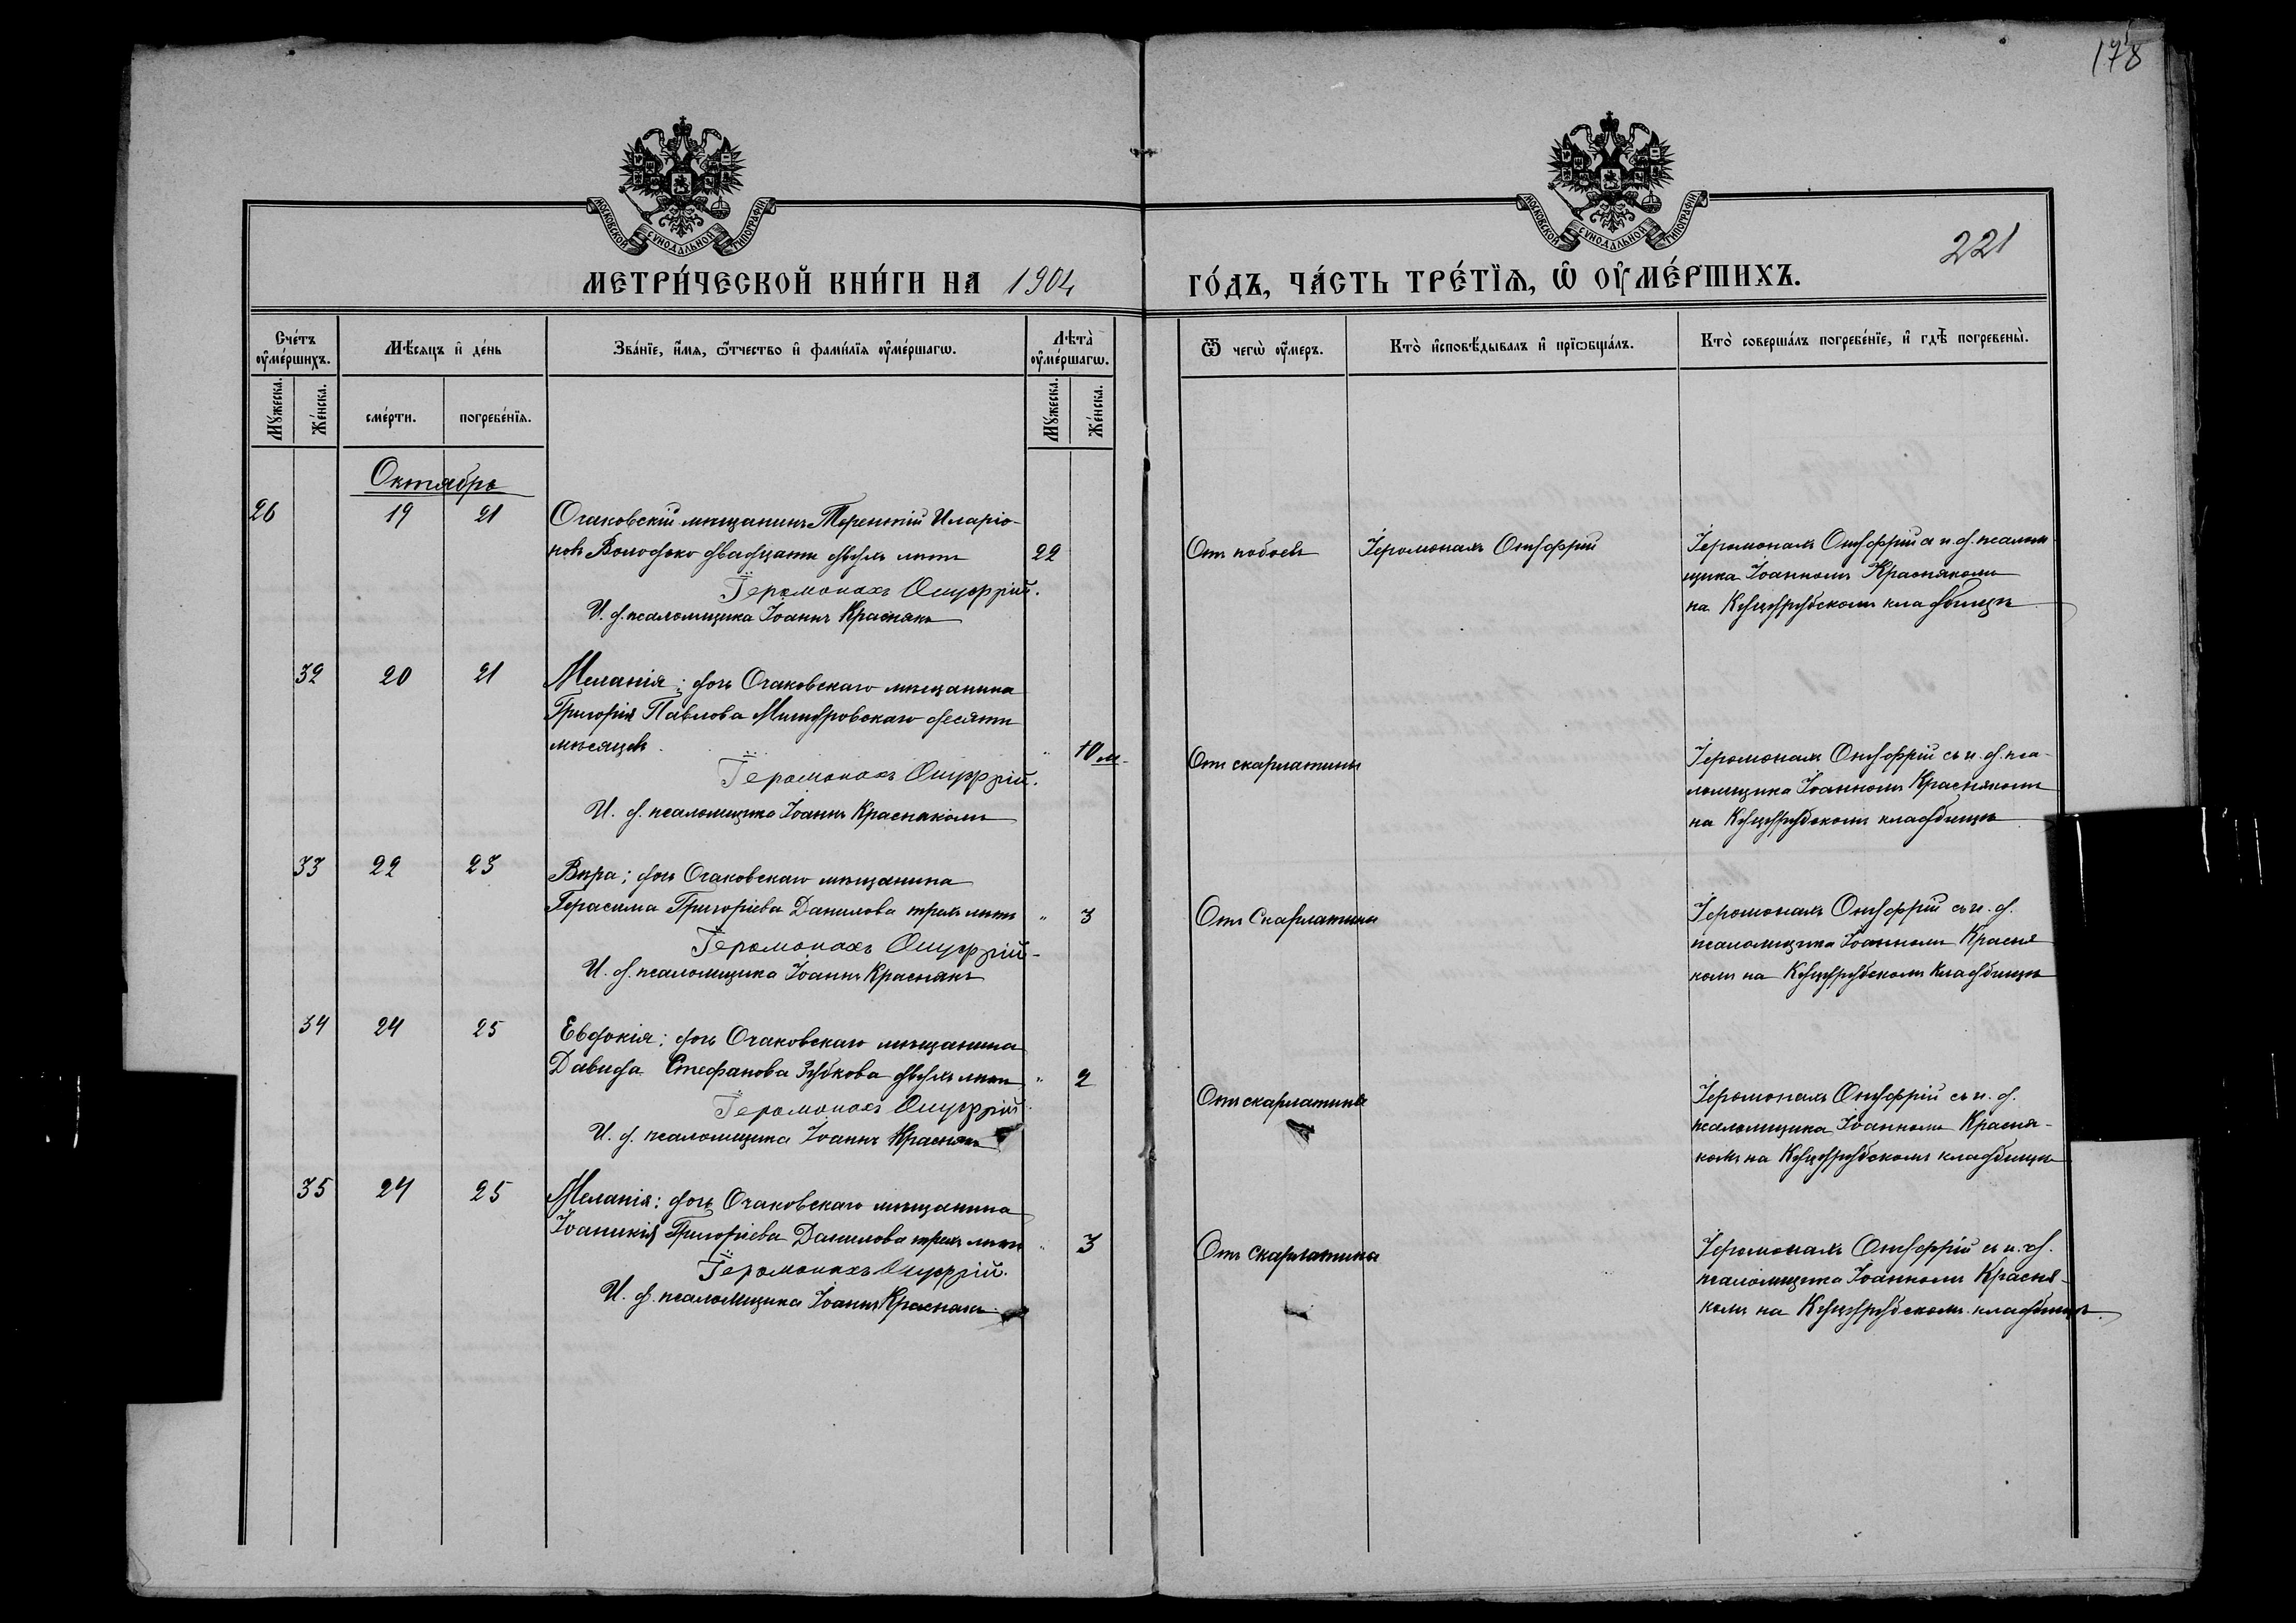 178
МОСКОВСКОЙ СУНОДАЛЬНОЙ ТИПОГРАФІИ
МОСКОВСКОЙ СУНОДАЛЬНОЙ ТИПОГРАФІИ
221
МЕТРИ́ЧЕСКОЙ КНИ́ГИ НА 1904
ГО́ДЪ, ЧА́СТЬ ТРЕ́ТЇѦ, Ѡ҆ ОУ҆МЕ́РШИХЪ.
Сче́тъ оу҆ме́ршихъ.
Мѣ́сяцъ и҆ де́нь
Зва́нїе, и҆́мѧ, ѻ҆́тчество и҆ фами́лїѧ оу҆ме́ршагѡ.
Лѣта̀ оу҆ме́ршагѡ.
Ѿ чегѡ̀ оу҆́меръ.
Кто̀ и҆сповѣ́дывалъ и҆ прїѡбща́лъ.
Кто̀ соверша́лъ погребе́нїе, и҆ гдѣ̀ погребены̀.
Мꙋжеска.
Же́нска.
сме́рти.
погребе́нїѧ.
Мꙋжеска.
Же́нска.
Октябрь
26 19 21 Очаковскій мѣщанинъ Терентій Иларіо-
новъ Володько двадцати двухъ лѣтъ 22
Іеромонахъ Онуфрій.
И. д. псаломщика Іоаннъ Краснякъ
Отъ побоевъ
Іеромонахъ Онуфрій
Іеромонахъ Онуфрій и. д. псалом
щика Іоанномъ Краснякомъ
на Куцурубскомъ кладбищѣ
32 20 21 Меланія; дочь Очаковскаго мѣщанина
Григорія Павлова десяти
мѣсяцевъ. " 10 м.
Іеромонахъ Онуфрій.
И. д. псаломщика Іоаннъ Краснякомъ
Отъ скарлатины
Іеромонахъ Онуфрій съ и. д. пса-
ломщика Іоанномъ Краснякомъ
на Куцурубскомъ кладбищѣ
33 22 23 Вѣра; дочь Очаковскаго мѣщанина
Герасима Григоріева Данилова трехъ лѣтъ " 3
Іеромонахъ Онуфрій
И. д. псаломщика Іоаннъ Краснякъ
Отъ Скарлатины
Іеромонахъ Онуфрій съ и. д.
псаломщика Іоанномъ Красня
комъ на Куцурубскомъ Кладбищѣ
34 24 25 Евдокія; дочь Очаковскаго мѣщанина
Давида Стефанова Зубкова двухъ лѣтъ " 2
Іеромонахъ Онуфрій
И. д. псаломщика Іоаннъ Краснякъ
Отъ скарлатины
Іеромонахъ Онуфрій съ и. д.
псаломщика Іоанномъ Красня-
комъ на Куцурубскомъ кладбищѣ
35 24 25 Меланія; дочь Очаковскаго мѣщанина
Іоаникія Григоріева Данилова трехъ лѣтъ " 3
Іеромонахъ Онуфрій.
И. д. псаломщика Іоаннъ Краснякъ.
Отъ Скарлатина
Іеромонахъ Онуфрій съ и. д.
псаломщика Іоанномъ Красня-
комъ на Куцурубскомъ кладбищѣ.